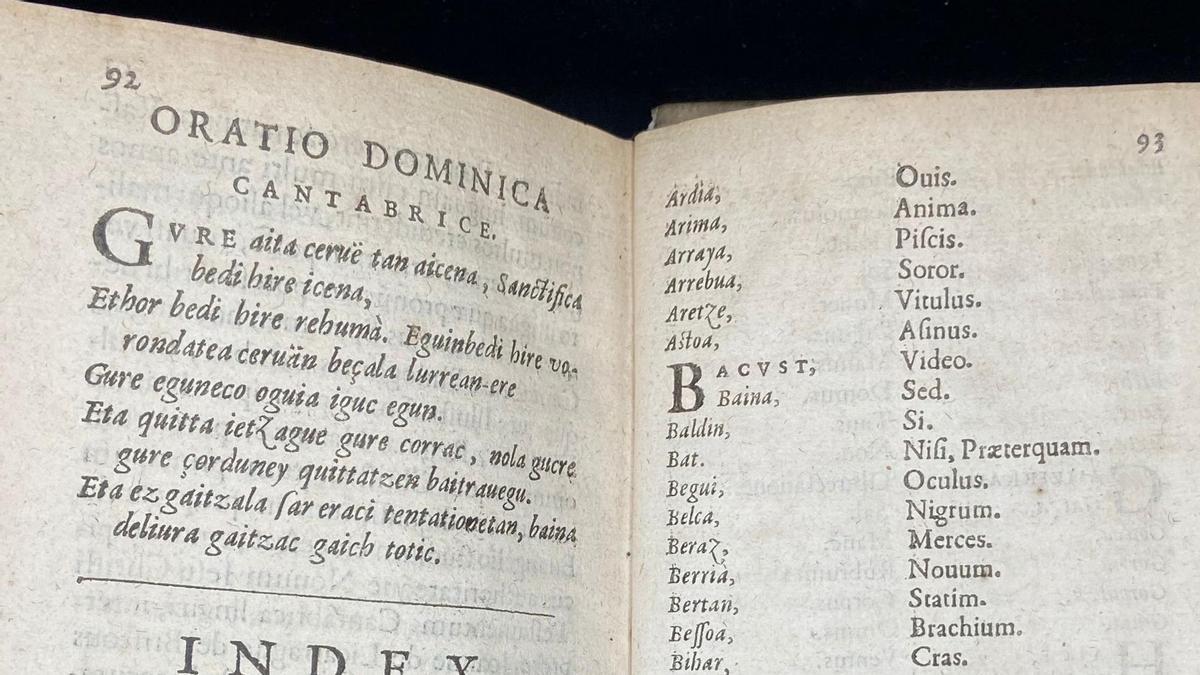 92
ORATIO DOMINICA
CANTABRICE.
GVRE aita ceruë tan aicena, Sanctifica
bedi hire icena,
Ethor bedi hire rehumà. Eguinbedi hire vo-
rondatea ceruän beçala lurrean-ere
Gure eguneco oguia iguc egun.
Eta quitta ietZague gure corrac, nola gucre
gure çorduney quittatzen baitrauegu.
Eta ez gaitzala ſar eraci tentationetan, baina
deliura gaitzac gaich totic.
INDEX
93
Ardia, Ouis.
Arima, Anima.
Arraya, Piſcis.
Arrebua, Soror.
AretZe, Vitulus.
Aſtoa, Aſinus.
BACVST, Video.
Baina, Sed.
Baldin, Si.
Bat. Niſi, Præterquam.
Begui, Oculus.
Belca, Nigrum.
BeraZ, Merces.
Berrià, Nouum.
Bertan, Statim.
Beſſoà, Brachium.
Bihar, Cras.